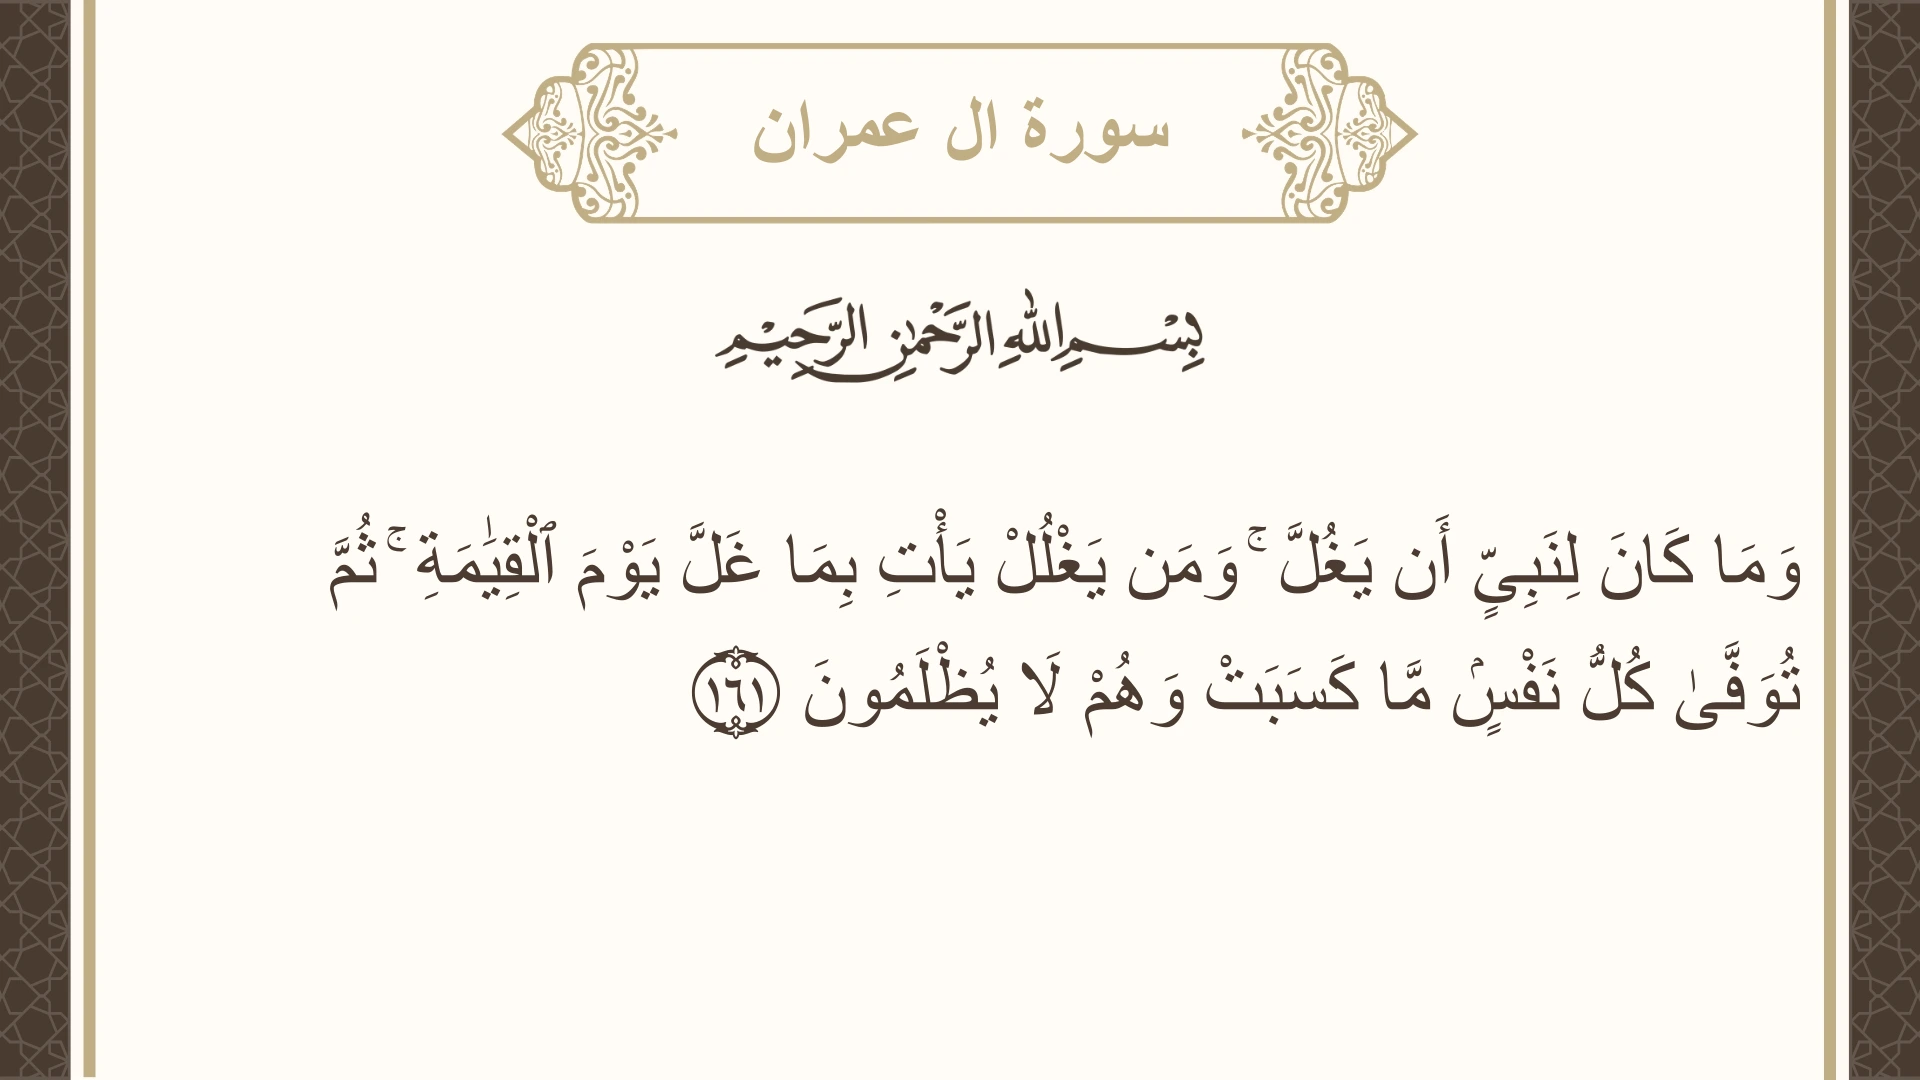 سورة ال عمران
بِسْمِ اللهِ الرَّحْمٰنِ الرَّحِيْمِ
وَمَا كَانَ لِنَبِىٍّ أَن يَغُلَّ ۚ وَمَن يَغْلُلْ يَأْتِ بِمَا غَلَّ يَوْمَ ٱلْقِيَٰمَةِ ۚ ثُمَّ
تُوَفَّىٰ كُلُّ نَفْسٍۢ مَّا كَسَبَتْ وَهُمْ لَا يُظْلَمُونَ ١٦١